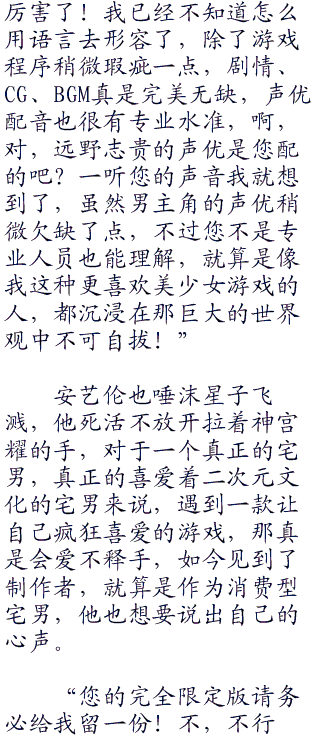 厉害了！我已经不知道怎么
用语言去形容了，除了游戏
程序稍微瑕疵一点，剧情、
CG、BGM真是完美无缺，声优
配音也很有专业水准，啊，
对，远野志贵的声优是您配
的吧？一听您的声音我就想
到了，虽然男主角的声优稍
微欠缺了点，不过您不是专
业人员也能理解，就算是像
我这种更喜欢美少女游戏的
人，都沉浸在那巨大的世界
观中不可自拔！”
安艺伦也唾沫星子飞
溅，他死活不放开拉着神宫
耀的手，对于一个真正的宅
男，真正的喜爱着二次元文
化的宅男来说，遇到一款让
自己疯狂喜爱的游戏，那真
是会爱不释手，如今见到了
制作者，就算是作为消费型
宅男，他也想要说出自己的
心声。
“您的完全限定版请务
必给我留一份！不，不行